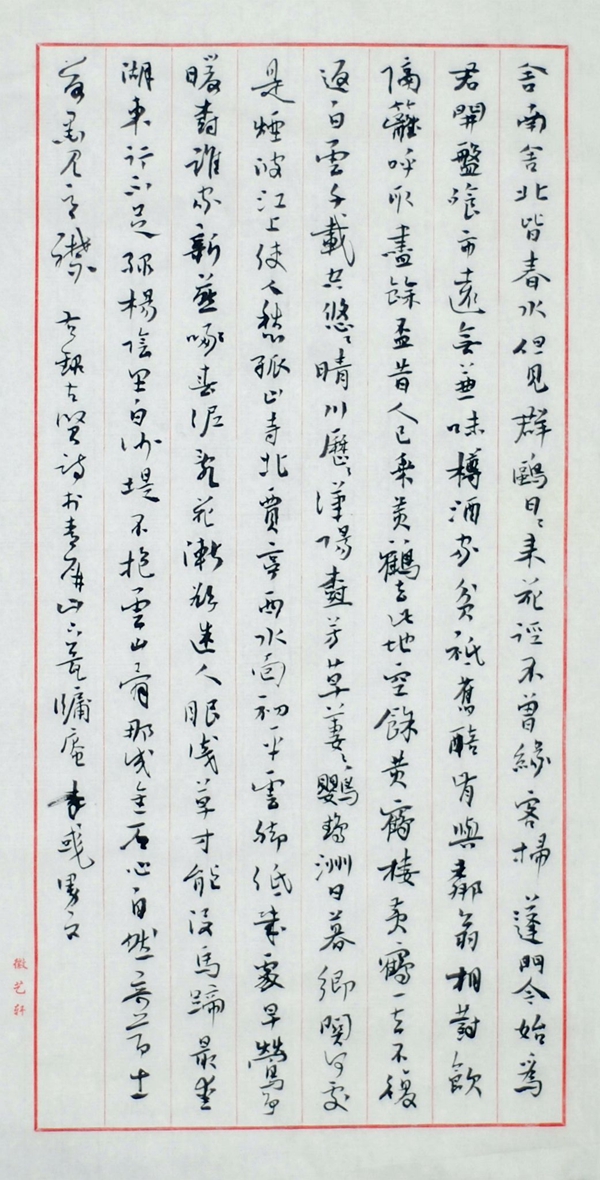 舍南舍北皆春水但見群鷗日〻来花逕不曾緣客掃蓬門今始爲
君開盤飧市遠無兼味樽酒家貧祗舊醅肯與鄰翁相對飲
隔籬呼取盡餘盃昔人已乘黄鶴去此地空餘黄鶴樓黄鶴一去不復
返白雲千載空悠〻晴川歷〻漢陽樹芳草萋〻鸚鵡洲日暮鄉關何處
是煙波江上使人愁孤山寺北賈亭西水面初平雲腳低幾處早鶯爭
暖樹誰家新燕啄春泥亂花漸欲迷人眼淺草才能沒馬蹄最愛
湖東行不足綠楊陰里白沙堤不抱雲山骨那成金石心自然奇節士
落墨見高襟
古詩書青屏山
徽艺轩